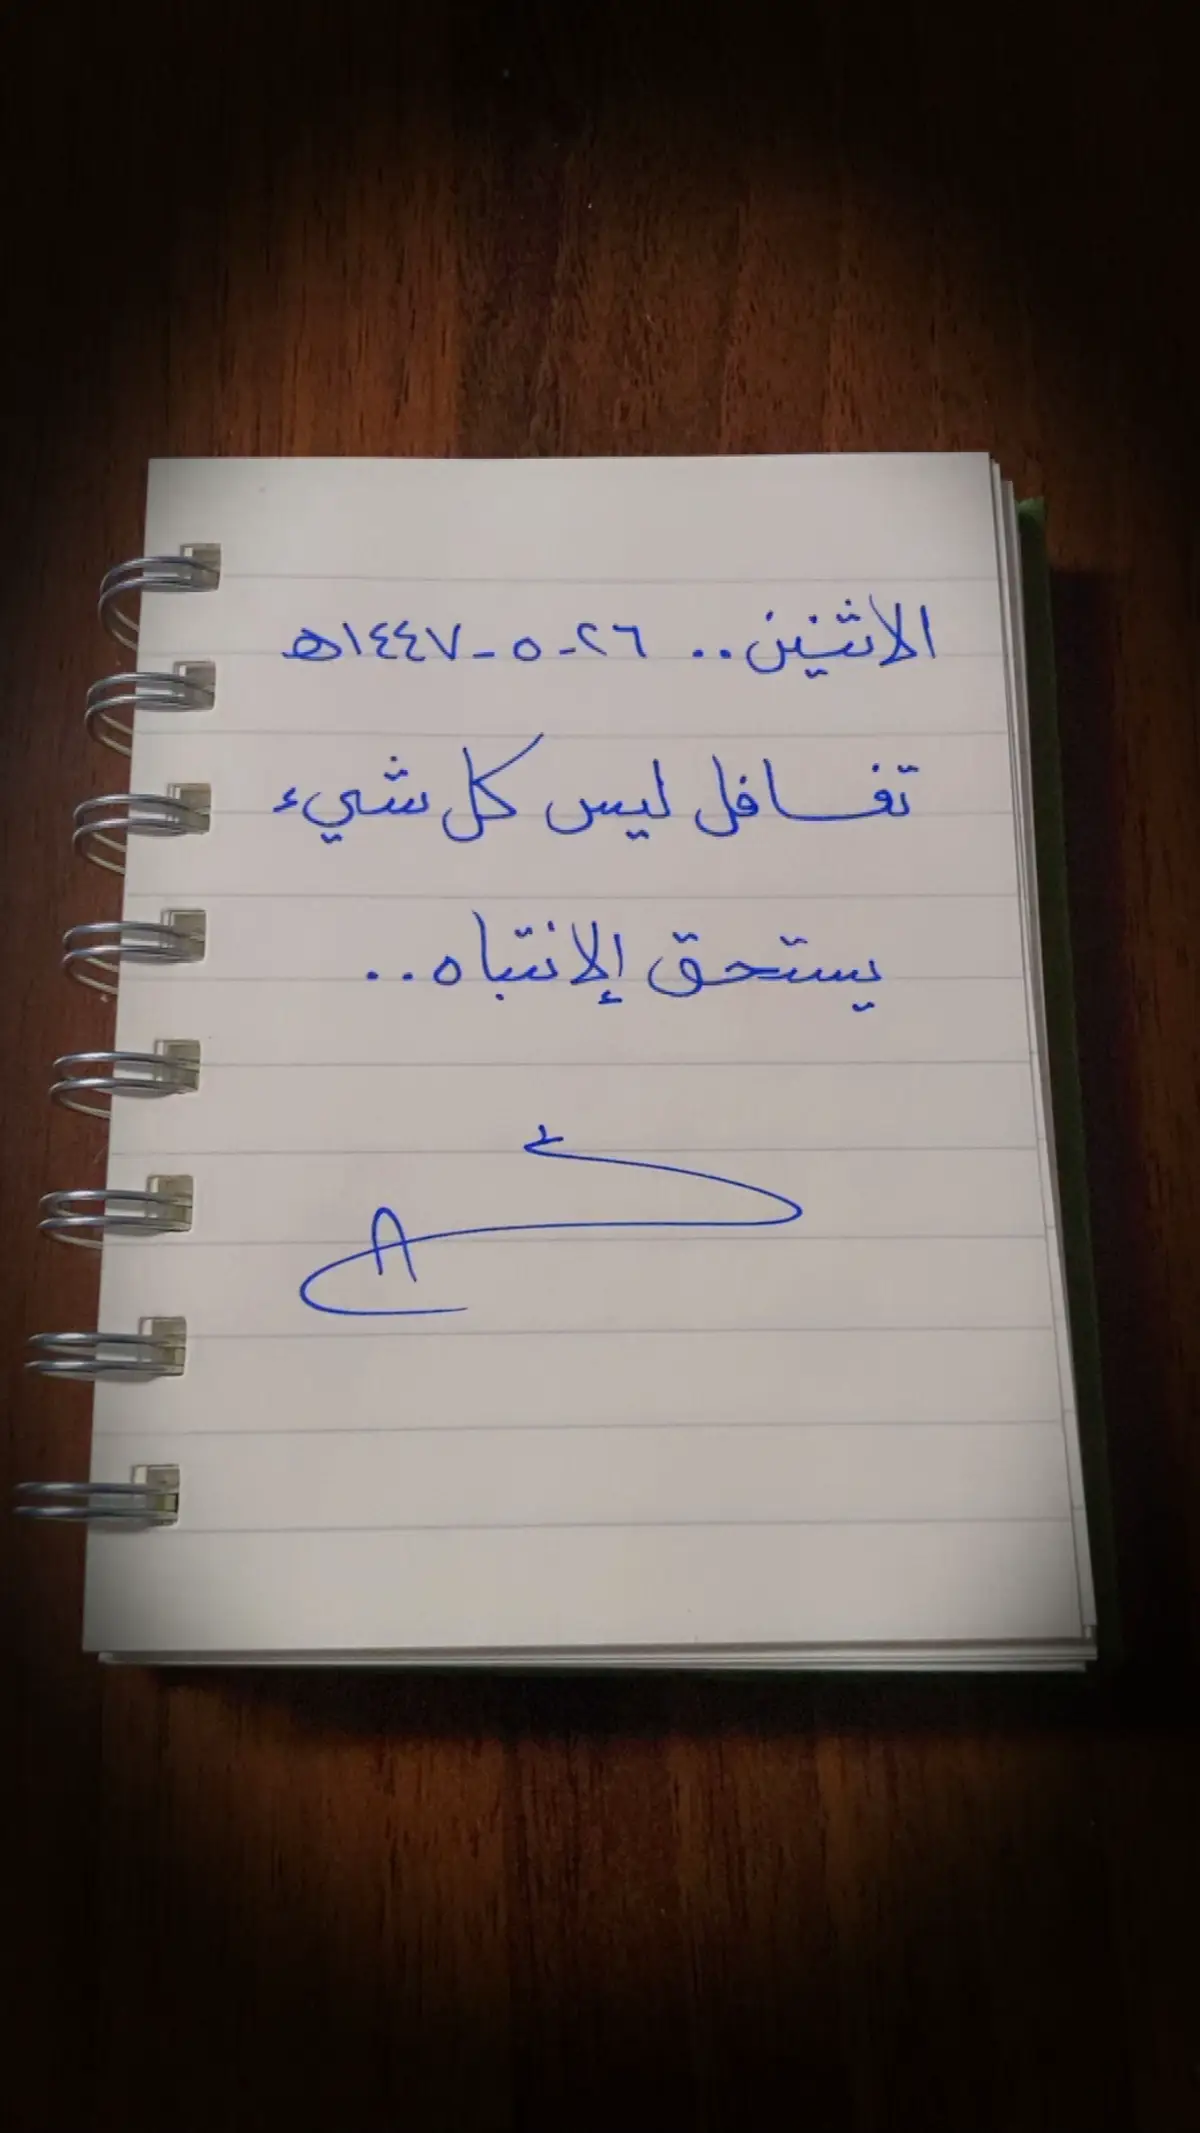 الاثنين.. ٢٦-٥-١٤٤٧هـ
تغافل ليس كل شيء
يستحق الإنتباه..